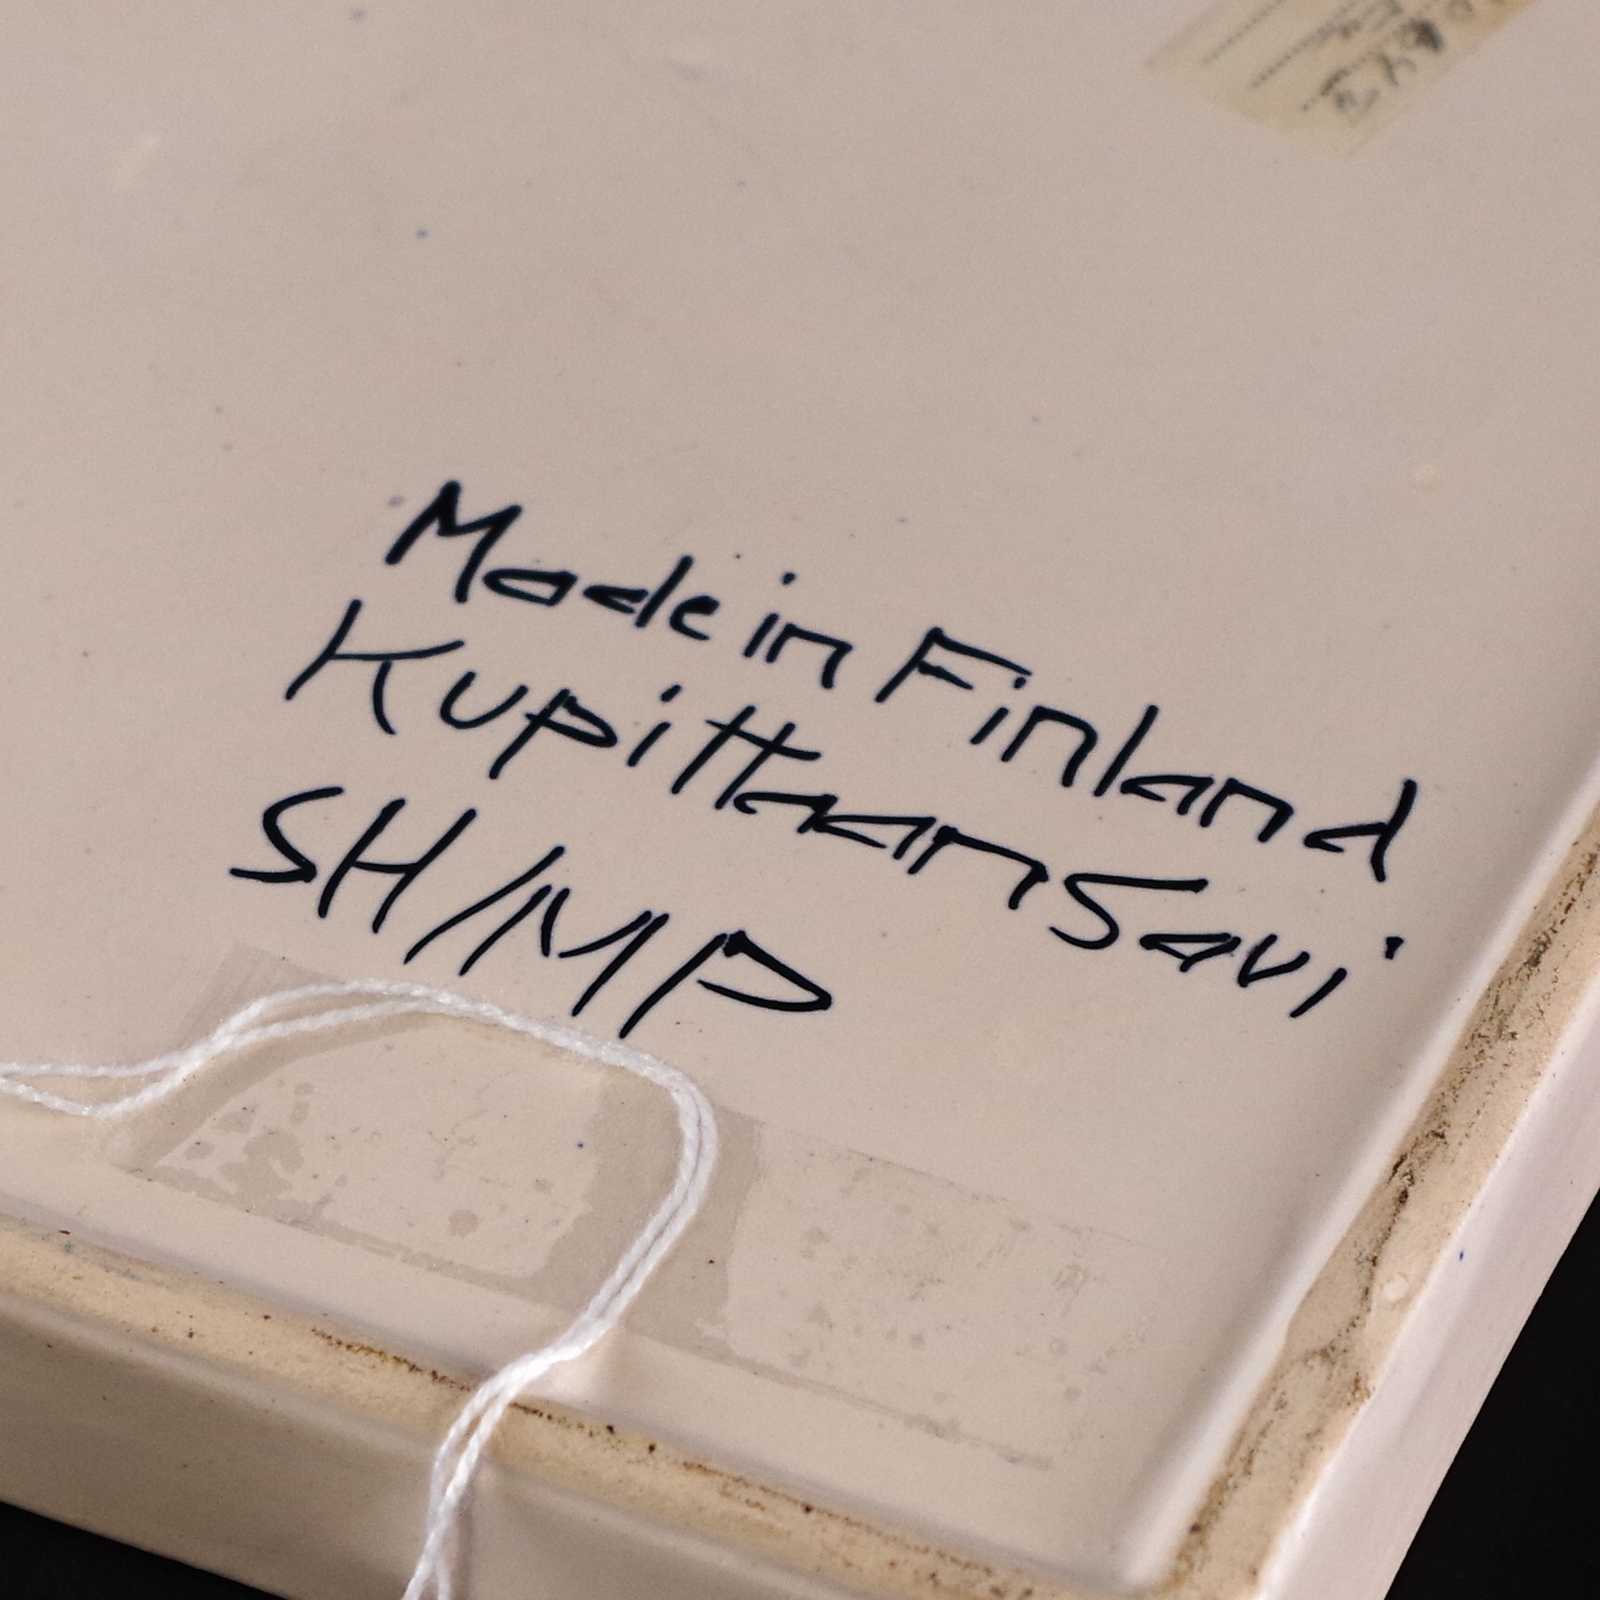 Made in Finland
Kupittaan Savi
SH/MP